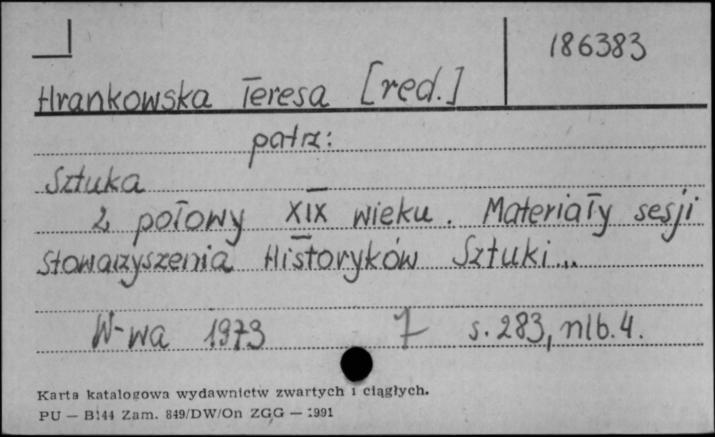 186383
Hrankowska Teresa [red.]
patrz:
Sztuka
2 połowy XIX wieku. Materiały sesji
Stowarzyszenia Historyków Sztuki...
W-wa 1973 7 s. 283, nlb. 4.
Karta katalogowa wydawnictw zwartych i ciągłych.
PU — B144 Zam. 849/DW/On ZGG — 1991